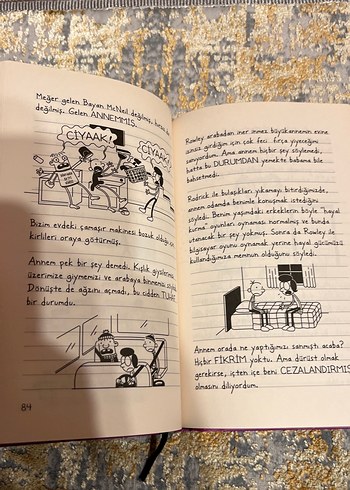 Meğer gelen Bayan McNeil değilmiş,
değilmiş. Gelen ANNEMMİŞ.
CİYAAK!
CİYAAK!
Bizim evdeki çamaşır makinesi bozuk olduğu için
kirlileri oraya götürmüş.
Annem pek bir şey demedi. Kışlık giysilerimizi
üzerimize giymemizi ve arabaya binmemizi söyledi.
Dönüşte de ağzını açmadı, bu cidden
bir durumdu.
84
Rowley arabadan iner inmez büyükannemin evine
izinsiz girdiğim için çok feci fırça yiyeceğimi
sanıyordum. Ama annem hiçbir şey söylemedi,
hatta bu DURUMDAN yemekte babama bile
bahsetmedi.
Rodrick ile bulaşıkları yıkamayı bitirdiğimizde,
annem odamda benimle konuşmak istediğini
söyledi. Benim yaşımdaki erkeklerin böyle "hayal
kurma" oyunları oynaması normalmiş ve bunda
utanacak bir şey yokmuş. Sonra da Rowley ile
bilgisayar oyunu oynamak yerine hayal gücümüzü
kullandığımıza memnun olduğunu söyledi.
Annem orada ne yaptığımızı sanmıştı acaba?
Hiçbir FİKRİM yoktu. Ama dürüst olmak
gerekirse, içten içe beni CEZALANDIRMIŞ
olmasını diliyordum.